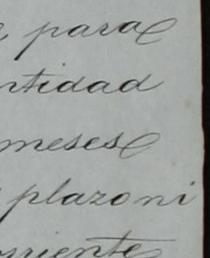 para
ntidad
meses
plazo ni
orriente